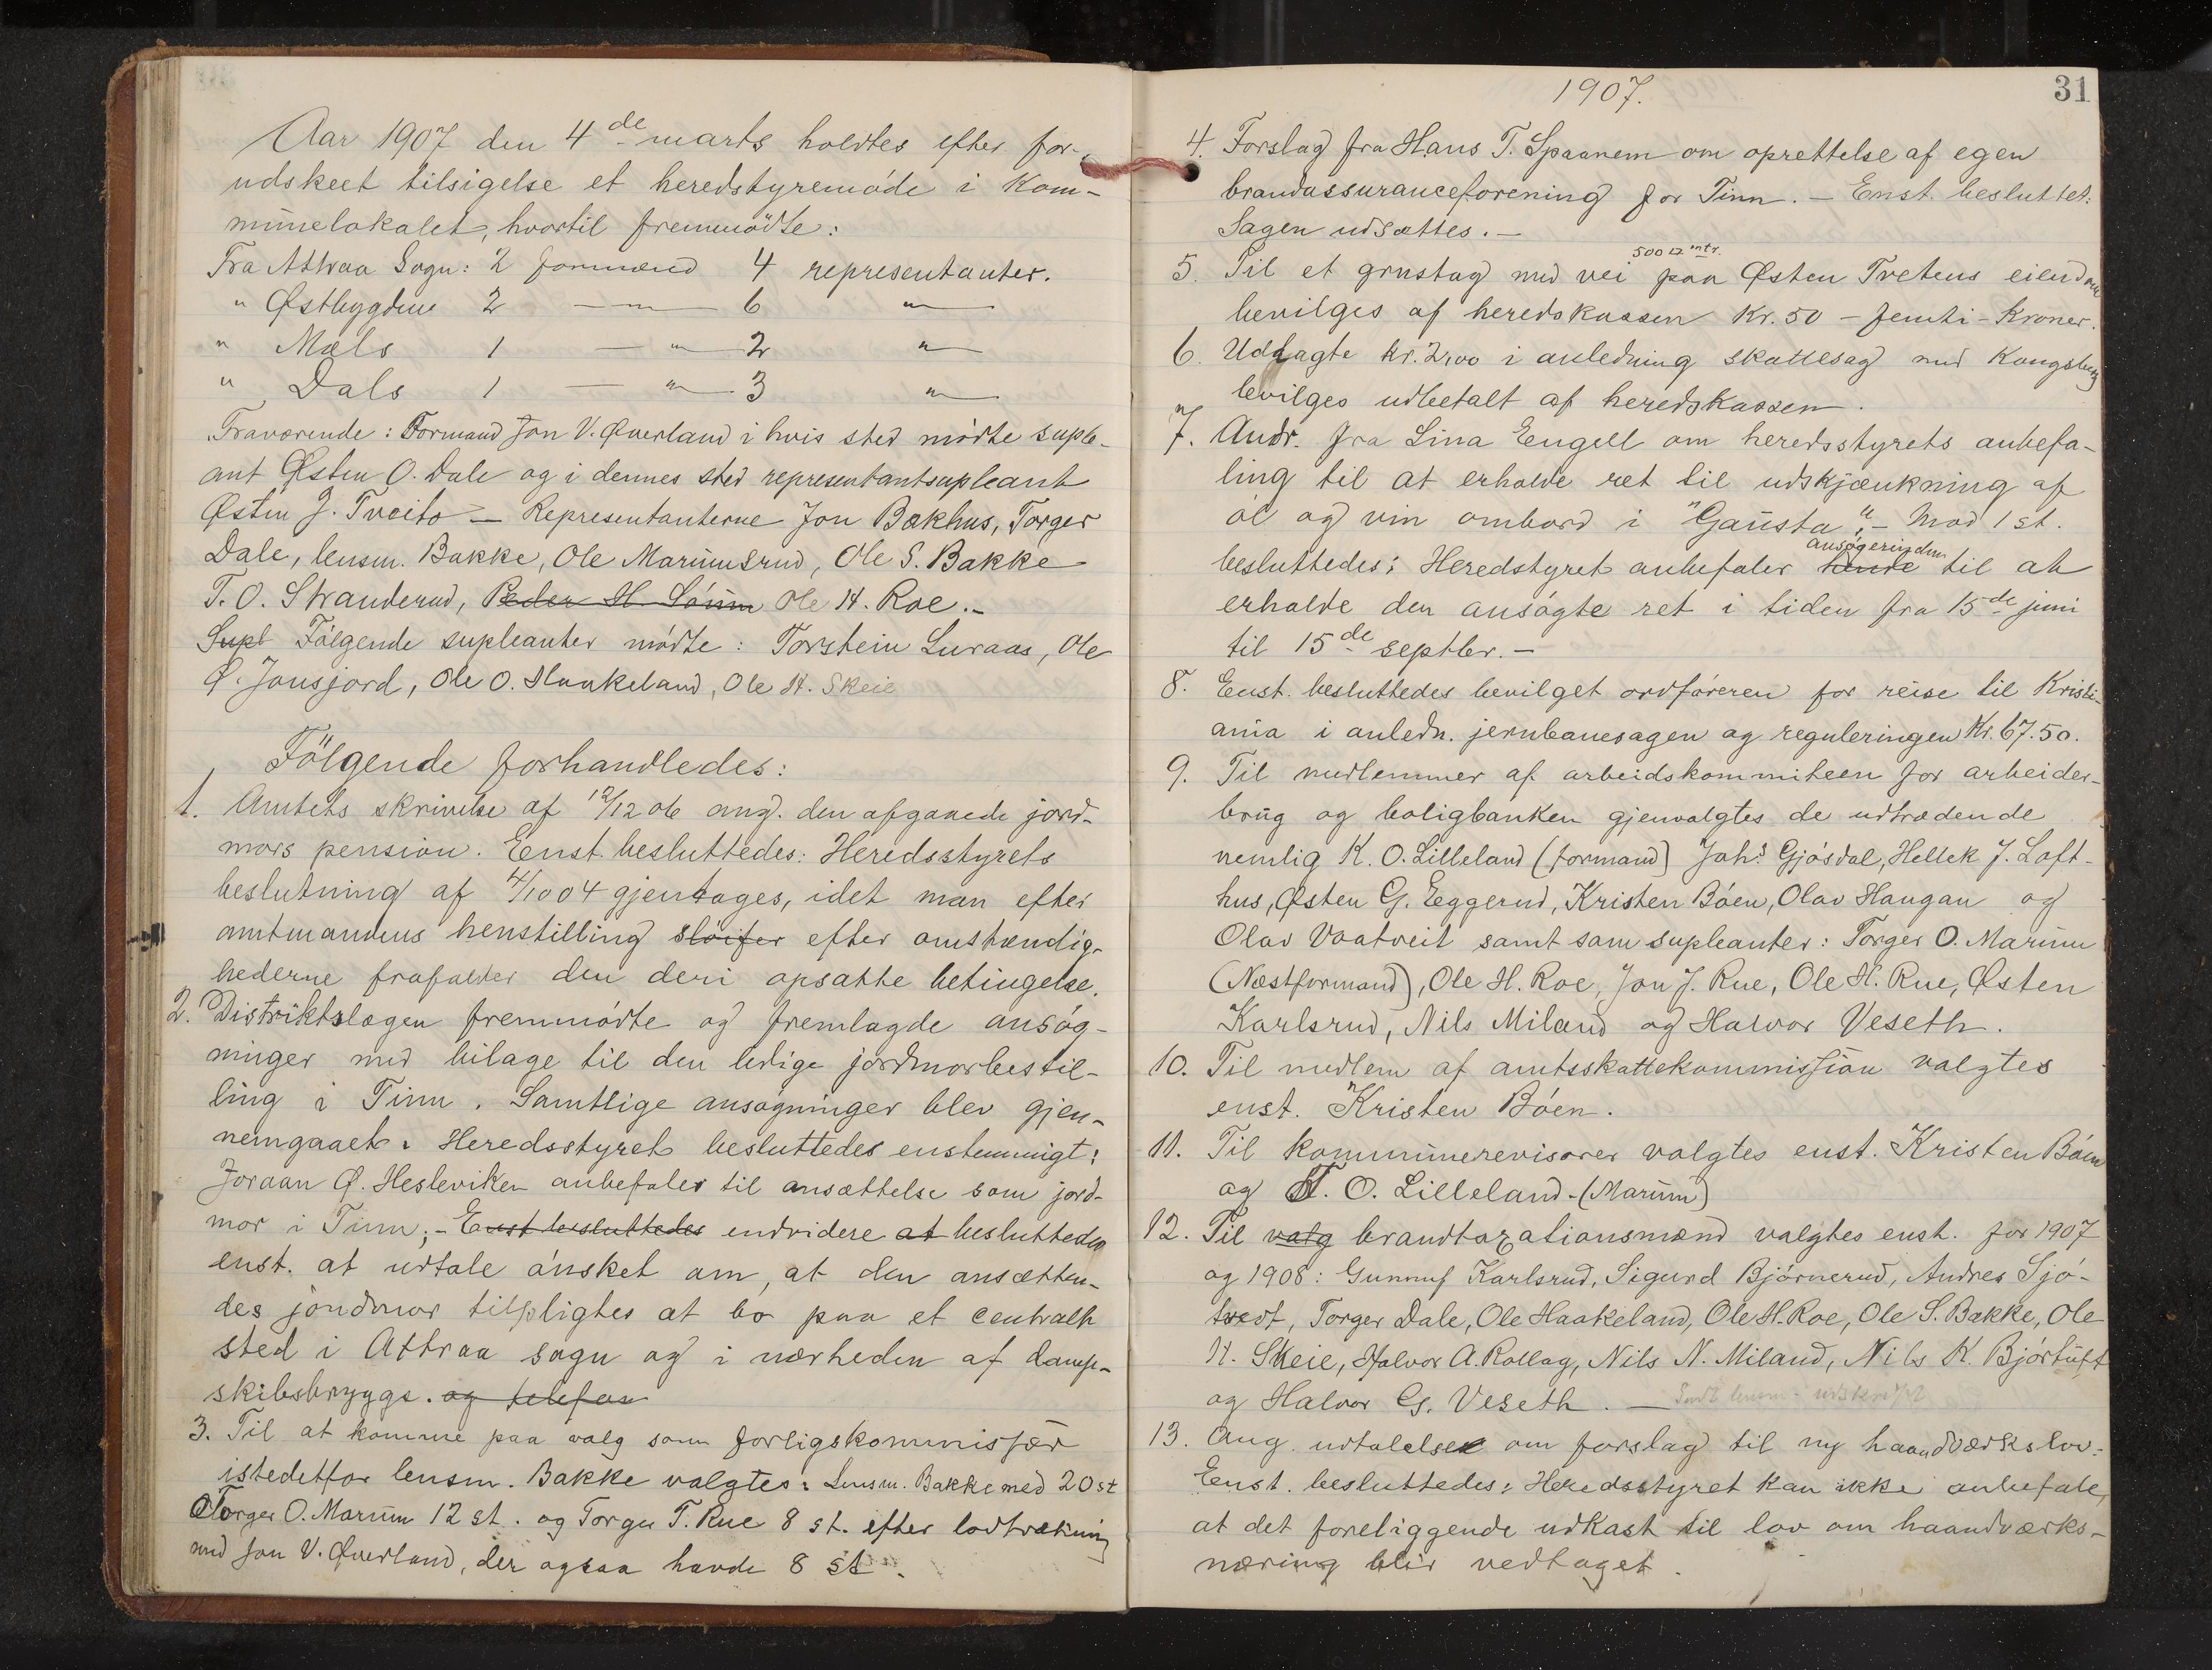 Aar 1907 den 4de marts holdtes efter for-
udskeet tilsigelse et heredstyremöde i Kom-
munelokalet, hvortil fremmödte:
Fra Attraa Sogn: 2 formænd 4 representanter.
" Østbygdens 2 —"— 6 —"—
" Mæls 1 —"— 2 —"—
" Dals 1 —"— 3 —"—
Fraværende: Formand Jon V. Øverland i hvis sted mödte suple-
ant Østen O. Dale og i dennes sted representantsupleant
Østen J. Tveito — Representanterne Jon Bækhus, Torger
Dale, lensm. Bakke, Ole Marumsrud, Ole S. Bakke
T. O. Stranderud, Peder H. Söum Ole H. Roe.-
Supl Fölgende supleanter mödte: Torstein Luraas, Ole
Ø. Jonsjord, Ole O. Haakeland, Ole H. Skeie
Fölgende forhandledes:
1. Amtets skrivelse af 12/12 06 ang. den afgaaede jord-
mors pension. Enst. besluttedes: Heredsstyrets
beslutning af 4/10 04 gjentages, idet man efter
amtmandens henstilling slöifer efter omstændig-
hederne frafalder den deri opsatte betingelse.
2. Distriktslægen fremmödte og fremlagde ansög-
ninger med bilage til den ledige jordmorbestil-
ling i Tinn. Samtlige ansögninger blev gjen-
nemgaaet. Heredsstyret besluttedes enstemmigt:
Joraan Ø. Hesleviken anbefales til ansættelse som jord-
mor i Tinn;- Enst besluttedes endvidere at besluttedes
enst. at udtale önsket om, at den ansætten-
des jordmor tilpligtes at bo paa et centralt
sted i Attraa sogn og i nærheden af damp-
skibsbrygge. og telefon
3. Til at komme paa valg som forligskommissær
istedetfor lensm. Bakke valgtes: Lensm. Bakke med 20 st
Torger O. Marum 12 st. og Torger T. Rue 8 st. efter lodtrækning
med Jon V. Øverland, der ogsaa havde 8 st.
1907.
31
4. Forslag fra Hans T. Spaanem om oprettelse af egen
brandassuranceforening for Tinn. - Enst. besluttet:
Sagen udsættes.-
500 □ mtr.
5. Til et grustag med vei paa Østen Tvetens eiendom
bevilges af heredskassen Kr. 50 - femti - Kroner.
6. Udlagte kr. 2,00 i anledning skattesag med Kongsberg
bevilges udbetalt af heredskassen.
7. Andr. fra Lina Engell om heredsstyrets anbefa-
ling til at erholde ret til udskjænkning af
öl og vin ombord i "Gausta".- Mod 1 st.
ansögerinden
besluttedes: Heredstyret anbefaler hende til at
erholde den ansögte ret i tiden fra 15de juni
til 15de septbr.-
8. Enst. besluttedes bevilget ordföreren for reise til Kristi-
ania i anledn. jernbanesagen og reguleringen Kr. 67.50.
9. Til medlemmer af arbeidskommiteen for arbeider-
brug og boligbanken gjenvalgtes de udtrædende
nemlig K. O. Lilleland (formand) Johs. Gjösdal, Hellek J. Loft-
hus, Østen G. Eggerud, Kristen Böen, Olav Haugan og
Olav Vaatveit samt som supleanter: Torger O. Marum
(Næstformand), Ole H. Roe, Jon J. Rue, Ole H. Rue, Østen
Karlsrud, Nils Miland og Halvor Veseth.
10. Til medlem af amtsskattekommission valgtes
enst. Kristen Böen.
11. Til kommunerevisorer valgtes enst. Kristen Böen
og T. O. Lilleland.-(Marum)
12. Til valg brandtaxationsmænd valgtes enst. for 1907
og 1908: Gunnuf Karlsrud, Sigurd Björnerud, Andres Sjö-
tvedt, Torger Dale, Ole Haakeland, Ole H. Roe, Ole S. Bakke, Ole
H. Skeie, Halvor A. Rollag, Nils N. Miland, Nils K. Björtuft
og Halvor G. Veseth. — Sendt lensm. udskrift
13. Ang. udtalelse om forslag til ny haandværkslov.
Enst. besluttedes: Heredsstyret kan ikke anbefale,
at det foreliggende udkast til lov om haandværks-
næring blir vedtaget.